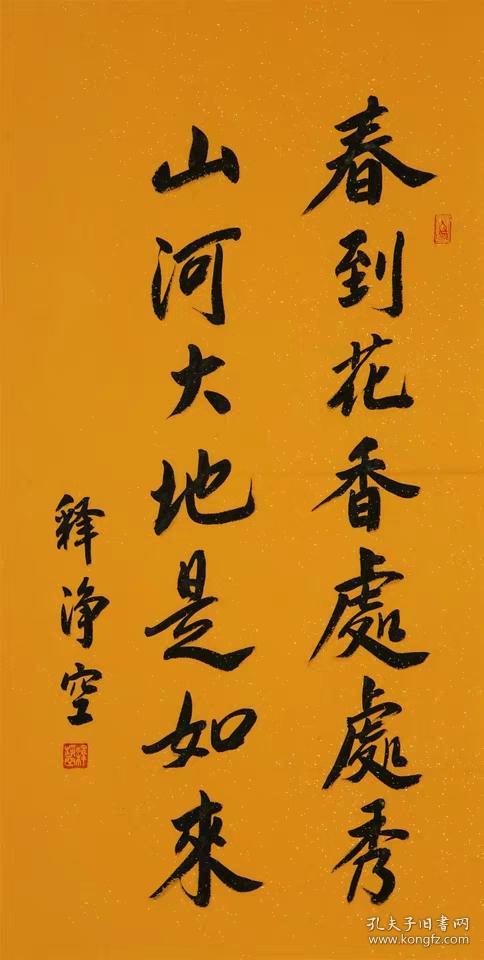 春到花香處處秀
山河大地是如來
释浄空
孔夫子旧书网
www.kongfz.com